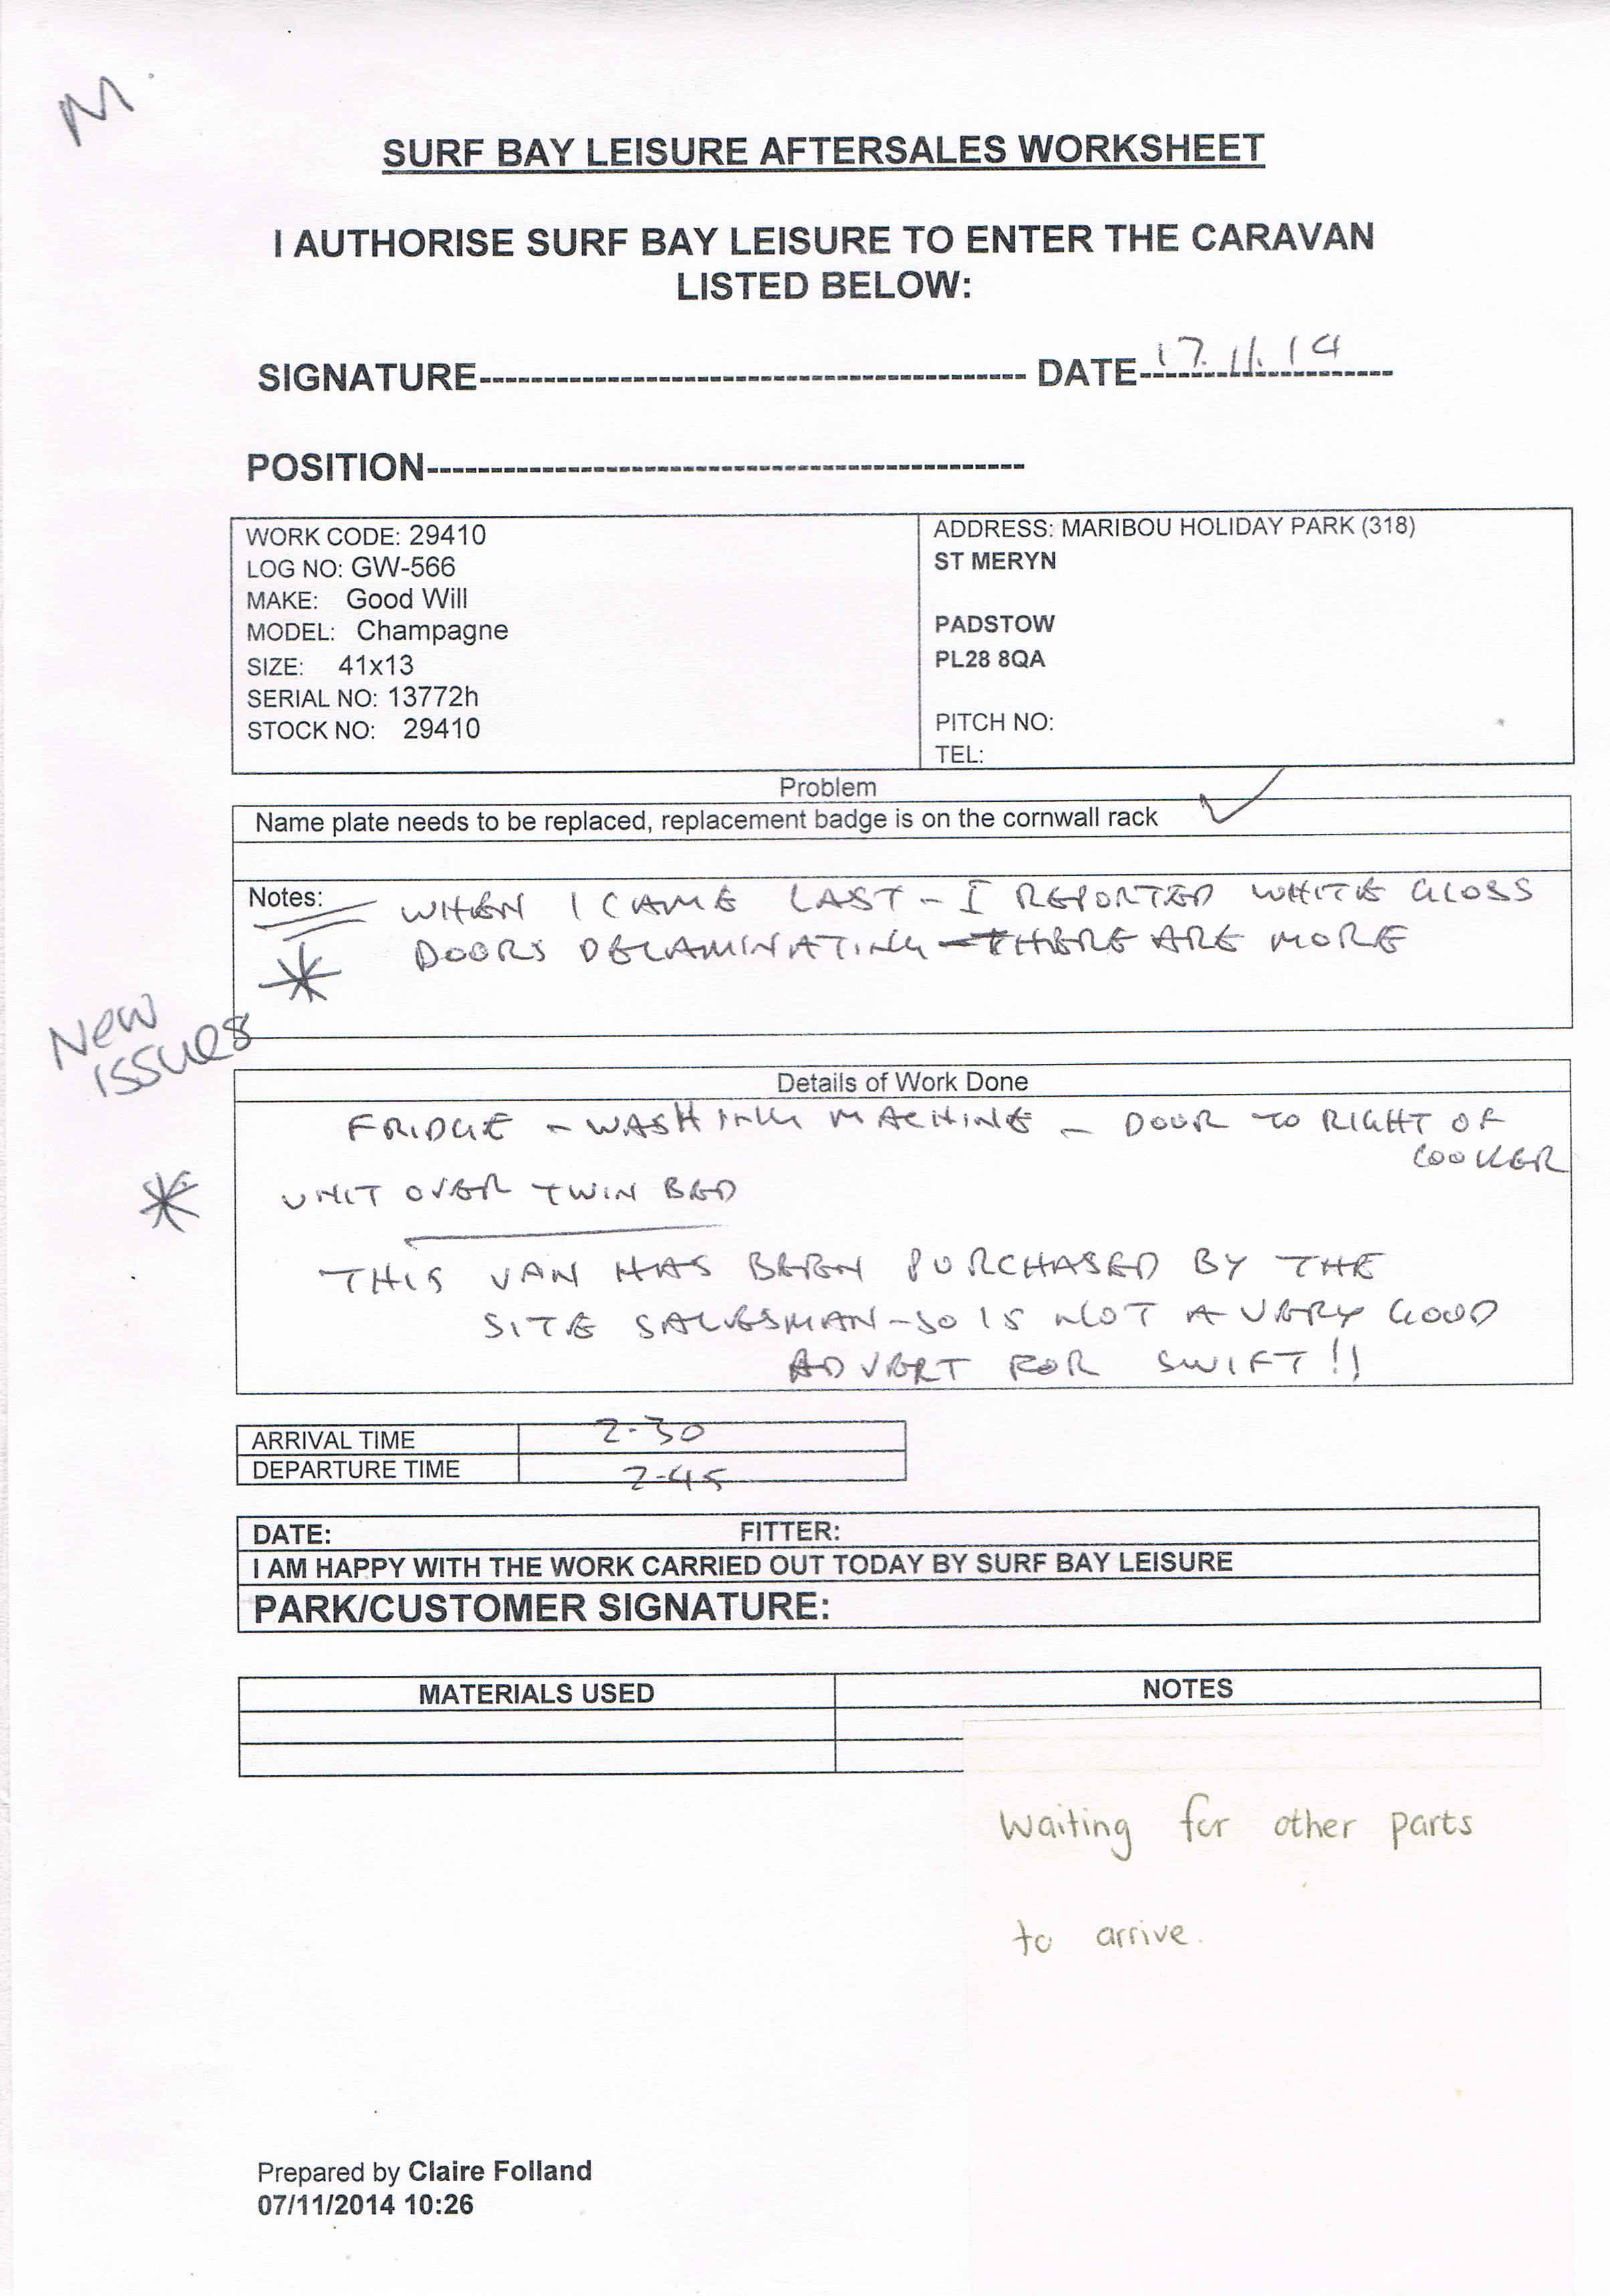 M.
SURF BAY LEISURE AFTERSALES WORKSHEET
I AUTHORISE SURF BAY LEISURE TO ENTER THE CARAVAN
LISTED BELOW:
SIGNATURE------------------------------------------- DATE 17.11.14
POSITION-----------------------------------------------
WORK CODE: 29410
LOG NO: GW-566
MAKE: Good Will
MODEL: Champagne
SIZE: 41x13
SERIAL NO: 13772h
STOCK NO: 29410
ADDRESS: MARIBOU HOLIDAY PARK (318)
ST MERYN
PADSTOW
PL28 8QA
PITCH NO:
TEL:
Problem
Name plate needs to be replaced, replacement badge is on the cornwall rack ✓
Notes: WHEN I CAME LAST - I REPORTED WHITE GLOSS
* DOORS DELAMINATING - THERE ARE MORE
New
issues
Details of Work Done
FRIDGE - WASHING MACHINE - DOOR TO RIGHT OF
COOKER
* UNIT OVER TWIN BED
THIS VAN HAS BEEN PURCHASED BY THE
SITE SALESMAN - SO IS NOT A VERY GOOD
ADVERT FOR SWIFT!!
ARRIVAL TIME 2-30
DEPARTURE TIME 2-45
DATE: FITTER:
I AM HAPPY WITH THE WORK CARRIED OUT TODAY BY SURF BAY LEISURE
PARK/CUSTOMER SIGNATURE:
MATERIALS USED NOTES
Waiting for other parts
to arrive.
Prepared by Claire Folland
07/11/2014 10:26